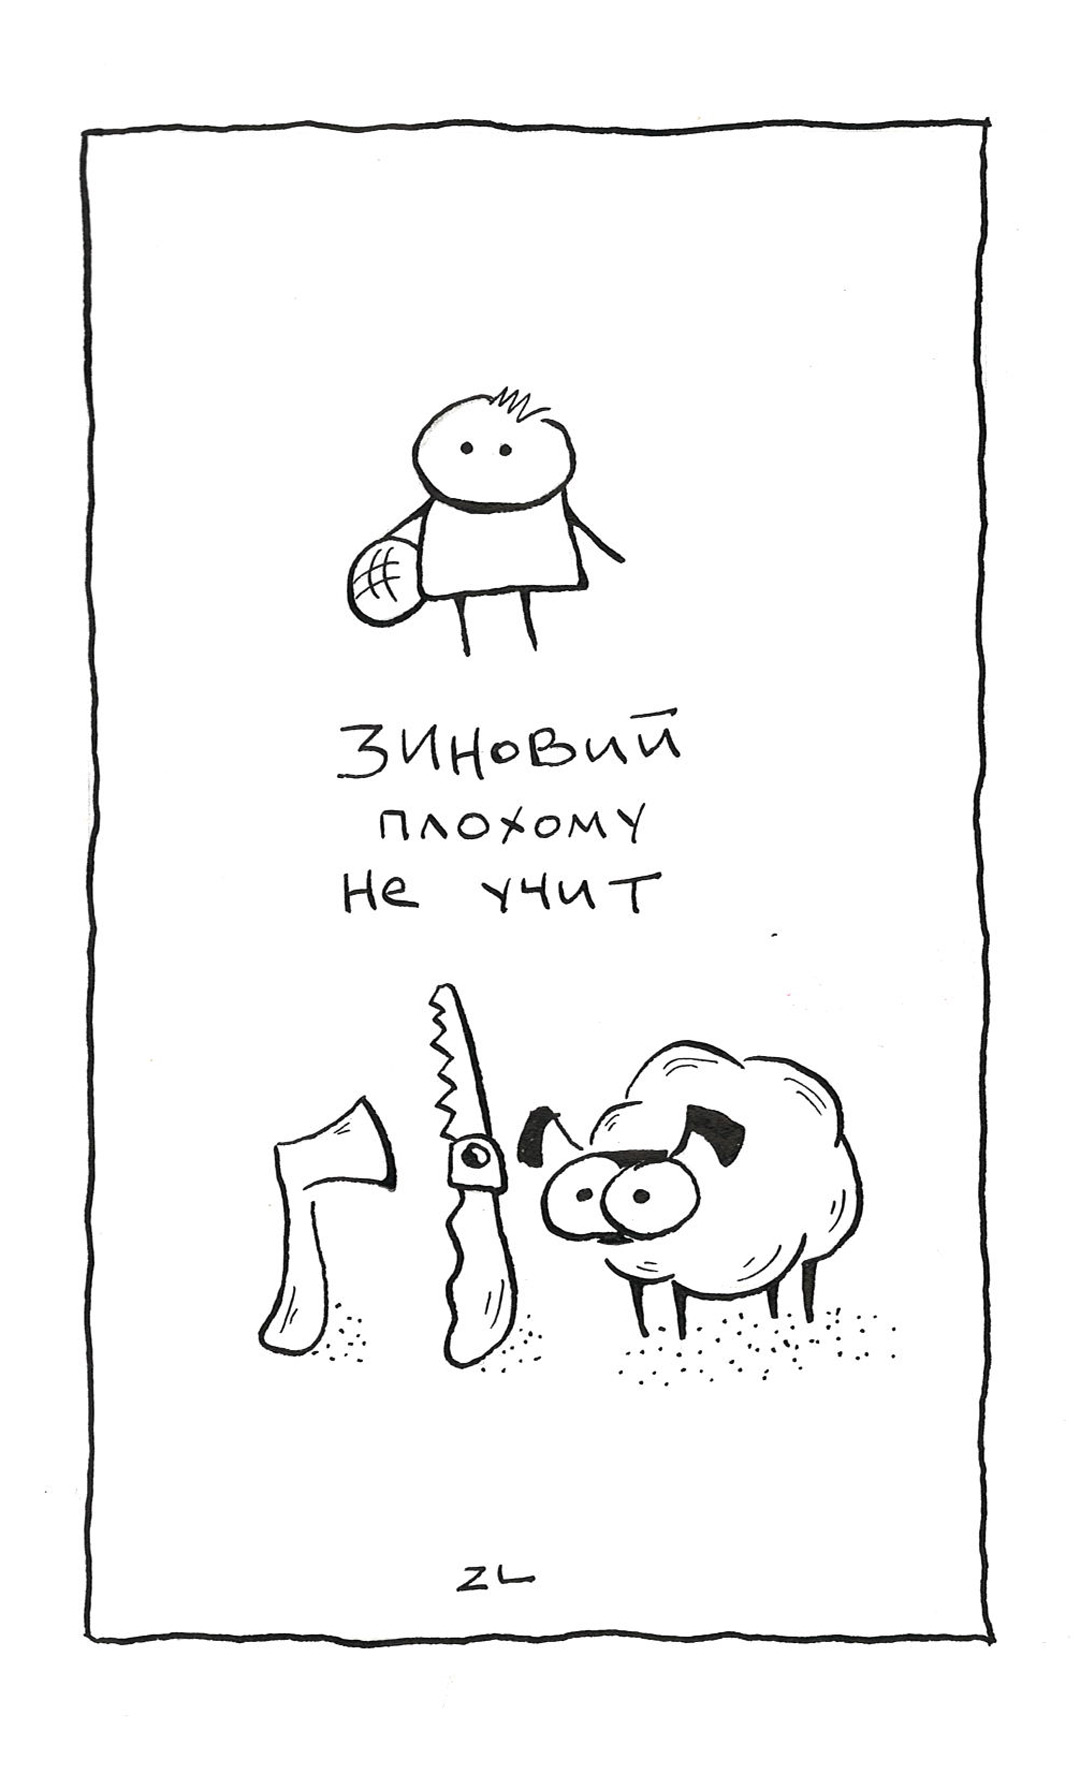 Зиновий
плохому
не учит
ZL